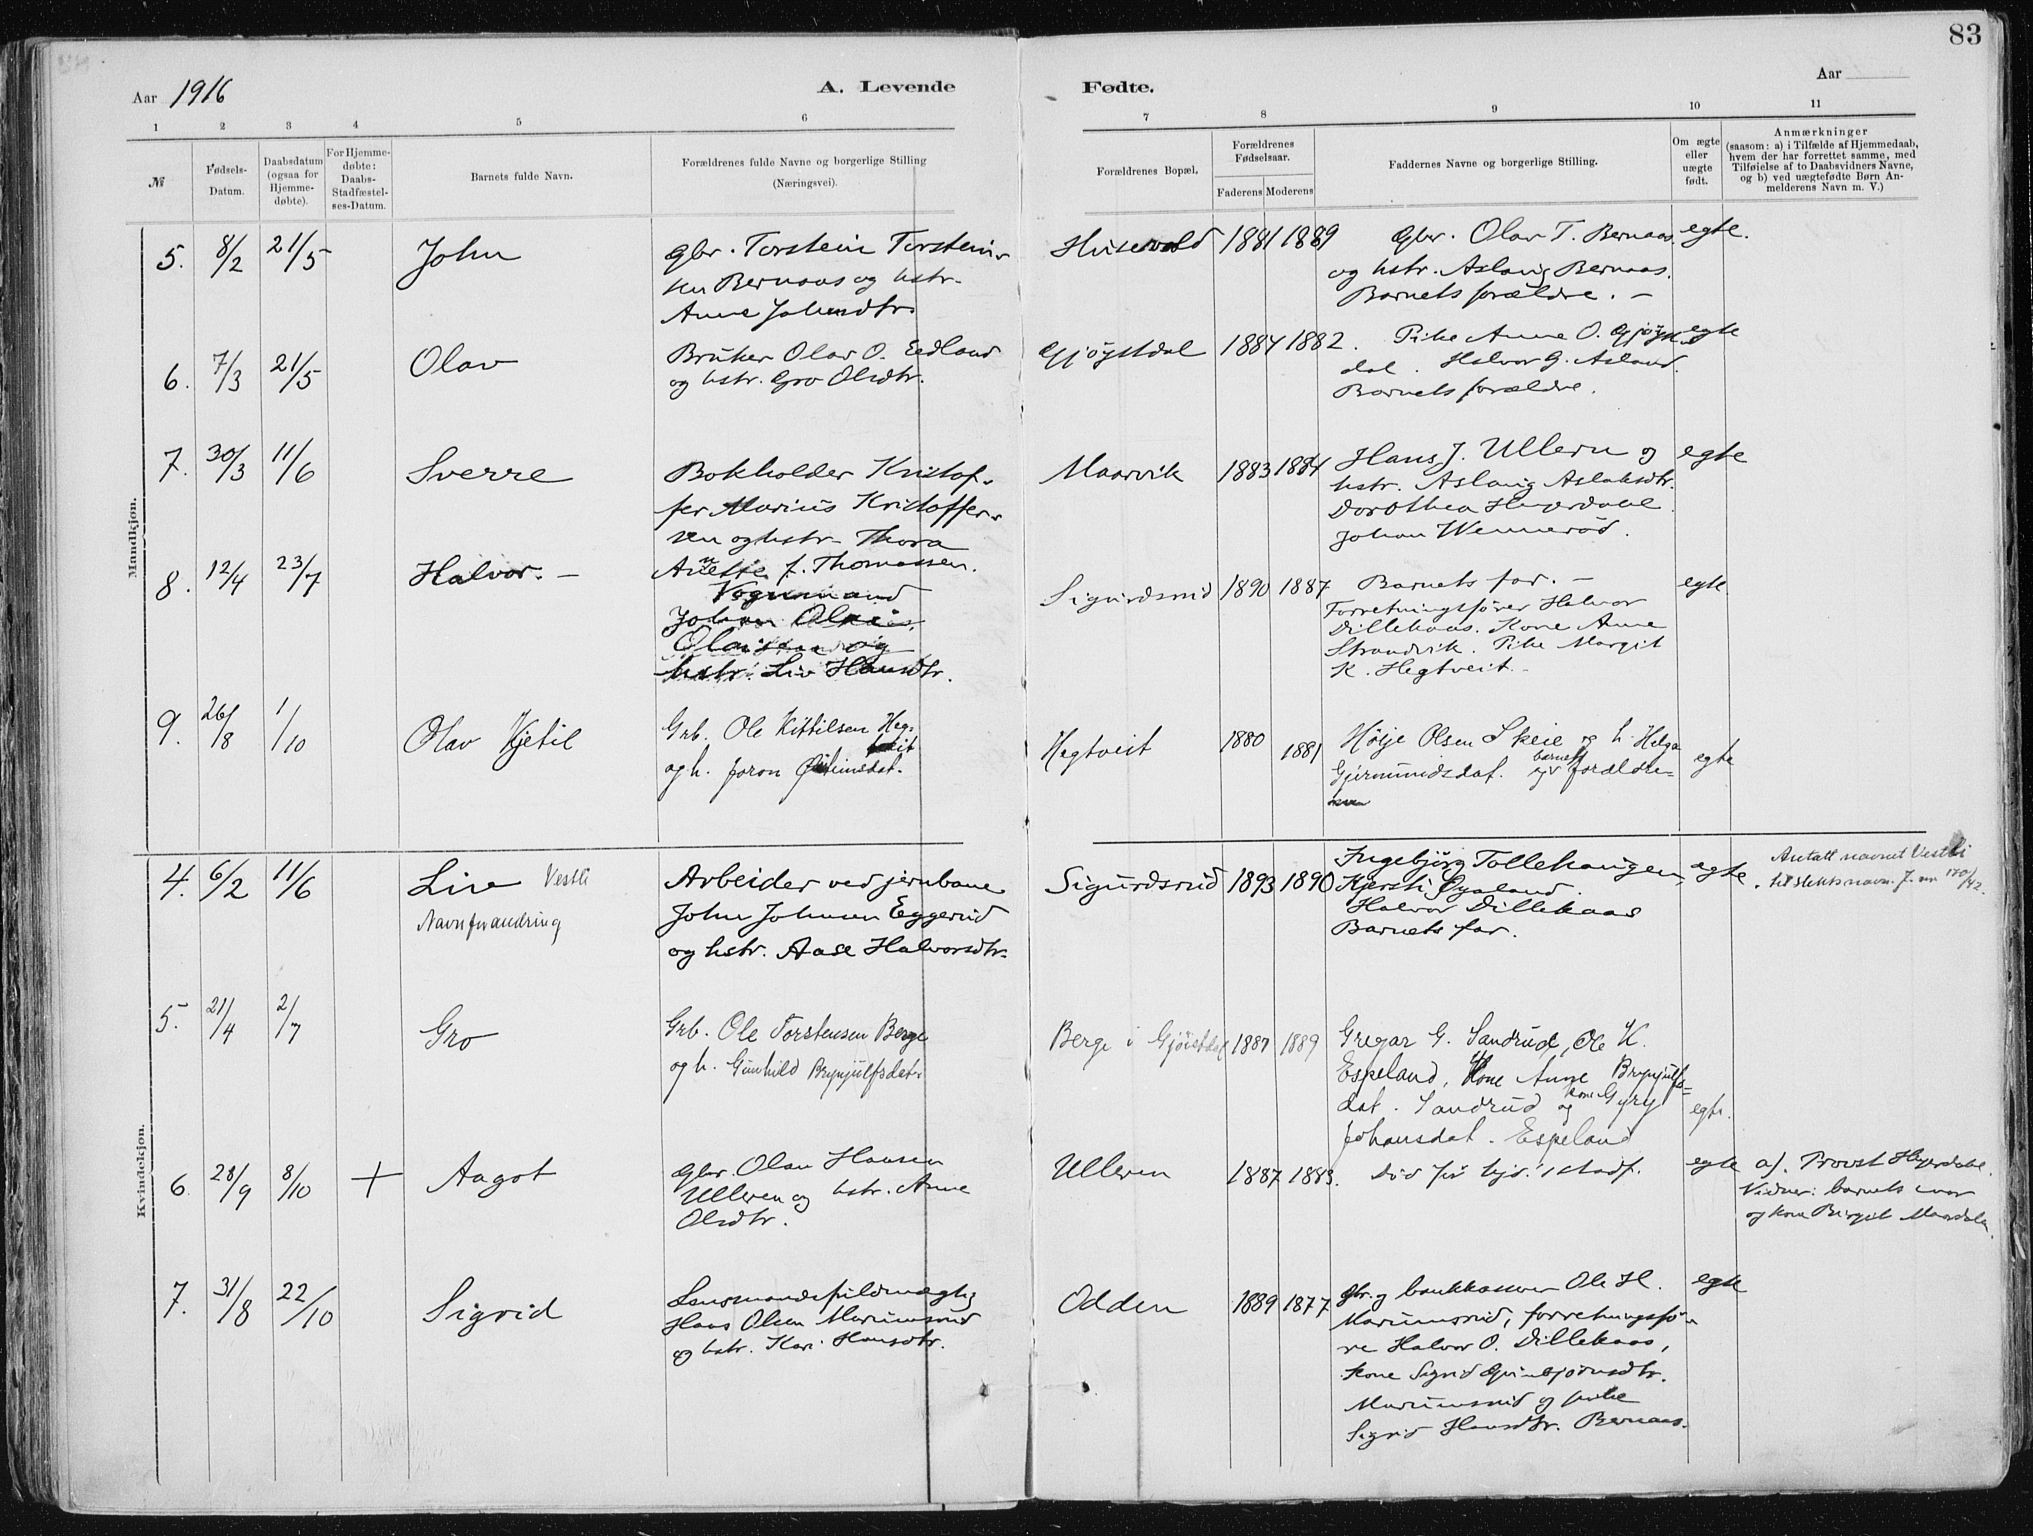 83
Aar 1916
A. Levende
Fødte.
Aar
1 2 3 4 5 6 7 8 9 10 11
№
Fødsels-
Datum.
Daabsdatum
(ogsaa for
Hjemme-
døbte).
For Hjemme-
døbte:
Daabs-
Stadfæstel-
ses-Datum.
Barnets fulde Navn.
Forældrenes fulde Navne og borgerlige Stilling
(Næringsvei).
Forældrenes Bopæl.
Forældrenes
Fødselsaar.
Faderens Moderens
Faddernes Navne og borgerlige Stilling.
Om ægte
eller
uægte
født.
Anmærkninger
(saasom: a) i Tilfælde af Hjemmedaab,
hvem der har forrettet samme, med
Tilføielse af to Daabsvidners Navne,
og b) ved uægtefødte Børn An-
melderens Navn m. V.)
Mandkjøn.
5. 8/2 21/5 John
Gbr. Torstein Torstein-
sen Bernaas og hstr.
Anne Johnsdtr.
Husevold 1881 1889
Gbr. Olav T. Bernaas
og hstr. Aslaug Bernaas.
Barnets forældre. –
egte.
6. 7/3 21/5 Olav
Bruker Olav O. Eedland
og hstr. Gro Olsdtr.
Gjøystdal 1884 1882.
Pike Anne O. Gjøyst
dal. Halvor G. Asland.
Barnets forældre.
egte
7. 30/3 11/6 Sverre
Bokholder Kristof-
fer Marius Kristoffer-
sen og hstr. Thora
Anette f. Thomassen.
Maarvik 1883 1884
Hans J. Ullern og
hstr. Aslaug Aslaksdtr.
Dorothea Heyerdahl
Johan Wennerød.
egte
8. 12/4 23/7 Halvor. –
Vognmand
Johan
Olaisen og
hstr. Liv Hansdtr.
Sigurdsrud 1890 1887
Barnets far. –
Forretningsfører Halvor
Dillekaas. Kone Anne
Strandvik. Pike Margit
K. Hegtveit. –
egte
9. 26/8 1/10 Olav Kjetil
Grb. Ole Kittilsen Heg-
tveit
og h. Joron Østeinsdat.
Hegtveit 1880 1881
Hølje Olsen Skeie og h. Helga
Gjermundsdat. og barnets foreldre-
ne
egte
Kvindekjøn.
4. 6/2 11/6 Liv Vestli
Navnforandring
Arbeider ved jernbane
John Johnsen Eggerud
og hstr. Aase Halvorsdtr.
Sigurdsrud 1893 1890
Ingebjørg Tollehaugen,
Kjersti Øyaland.
Halvor Dillekaas
Barnets far.
egte
Antatt navnet Vestli
til slektsnavn. J. nr 170/42.
5. 21/4 2/7 Gro
Grb. Ole Torstensen Berge
og h. Gunhild Brynjulfsdat.
Berge i Gjøistdal 1887 1889
Gregar G. Sandrud, Ole K.
Espeland, Kone Anne Brynjulfs-
dat. Sandrud og kone Gyry
Johansdat. Espeland
egte.
6. 28/9 8/10 + Aagot
Gbr. Olav Hansen
Ulleren og hstr. Anne
Olsdtr.
Ulleren 1887 1883.
Død før hjd. stadf.
egte
a). Provst Heyerdahl.
Vidner: barnets mor
og kone Birgit Maardalen.
7. 31/8 22/10 Sigrid
Lensmandsfuldmægtig
Hans Olsen Marumsrud
og hstr. Kari Hansdtr.
Odden 1889 1877
Gbr. og bankkasserer Ole H.
Marumsrud, forretningsfø-
re Halvor O. Dillekaas,
kone Sigrid Gunbjørnsdtr.
Marumsrud og pike
Sigrid Hansdtr. Bernaas.
egte